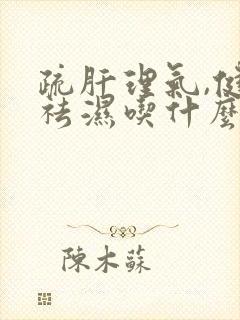 疏肝理氣,健
祛濕喫什麼
陳木蘇